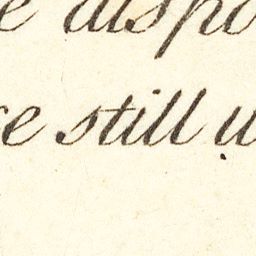 e dispo
re still u